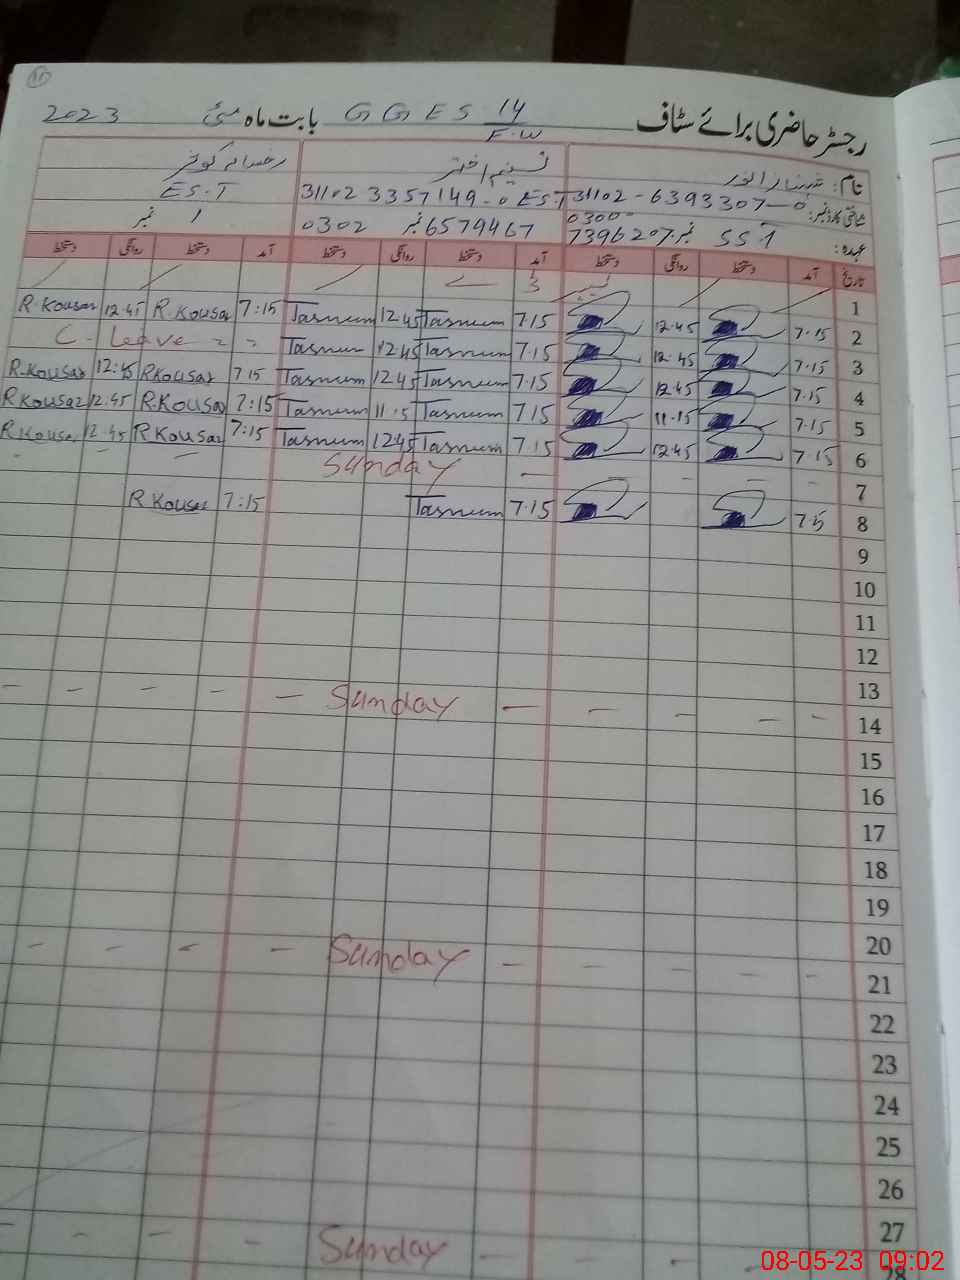 رجسٹر حاضری برائے سٹاف GGES 14/F.W بابت ماہ مئی 2023
نام: شہناز انور
نسیم اختر
رخسانہ کوثر
شناختی کارڈ نمبر: 31102-6393307-0
31102 3357149-0 EST
ES.T
عہدہ: SST نمبر 0300- 7396207
0302 نمبر 6579467
نمبر 1
تاریخ آمد دستخط روانگی دستخط آمد دستخط روانگی دستخط آمد دستخط روانگی دستخط
1
2 7.15 12.45 7.15 Tasnum 12.45 Tasnum 7:15 R.Kousar 12.45 R.Kousar
3 7.15 12.45 7.15 Tasnum 12.45 Tasnum C. Leave
4 7.15 12.45 7.15 Tasnum 12.45 Tasnum 7.15 RKousar 12:45 R.Kousar
5 7.15 11.15 7.15 Tasnum 11.15 Tasnum 7:15 R.Kousar 12.45 RKousar
6 7.15 12.45 7.15 Tasnum 12.45 Tasnum 7:15 RKousar 12.45 RKousar
7 - - - - - Sunday - - -
8 7.15 7.15 Tasnum 7:15 R Kousar
9
10
11
12
13
14 - - - - - Sunday - - - - -
15
16
17
18
19
20
21 - - - - - Sunday - - - -
22
23
24
25
26
27
28 - - - Sunday - - -
08-05-23 09:02